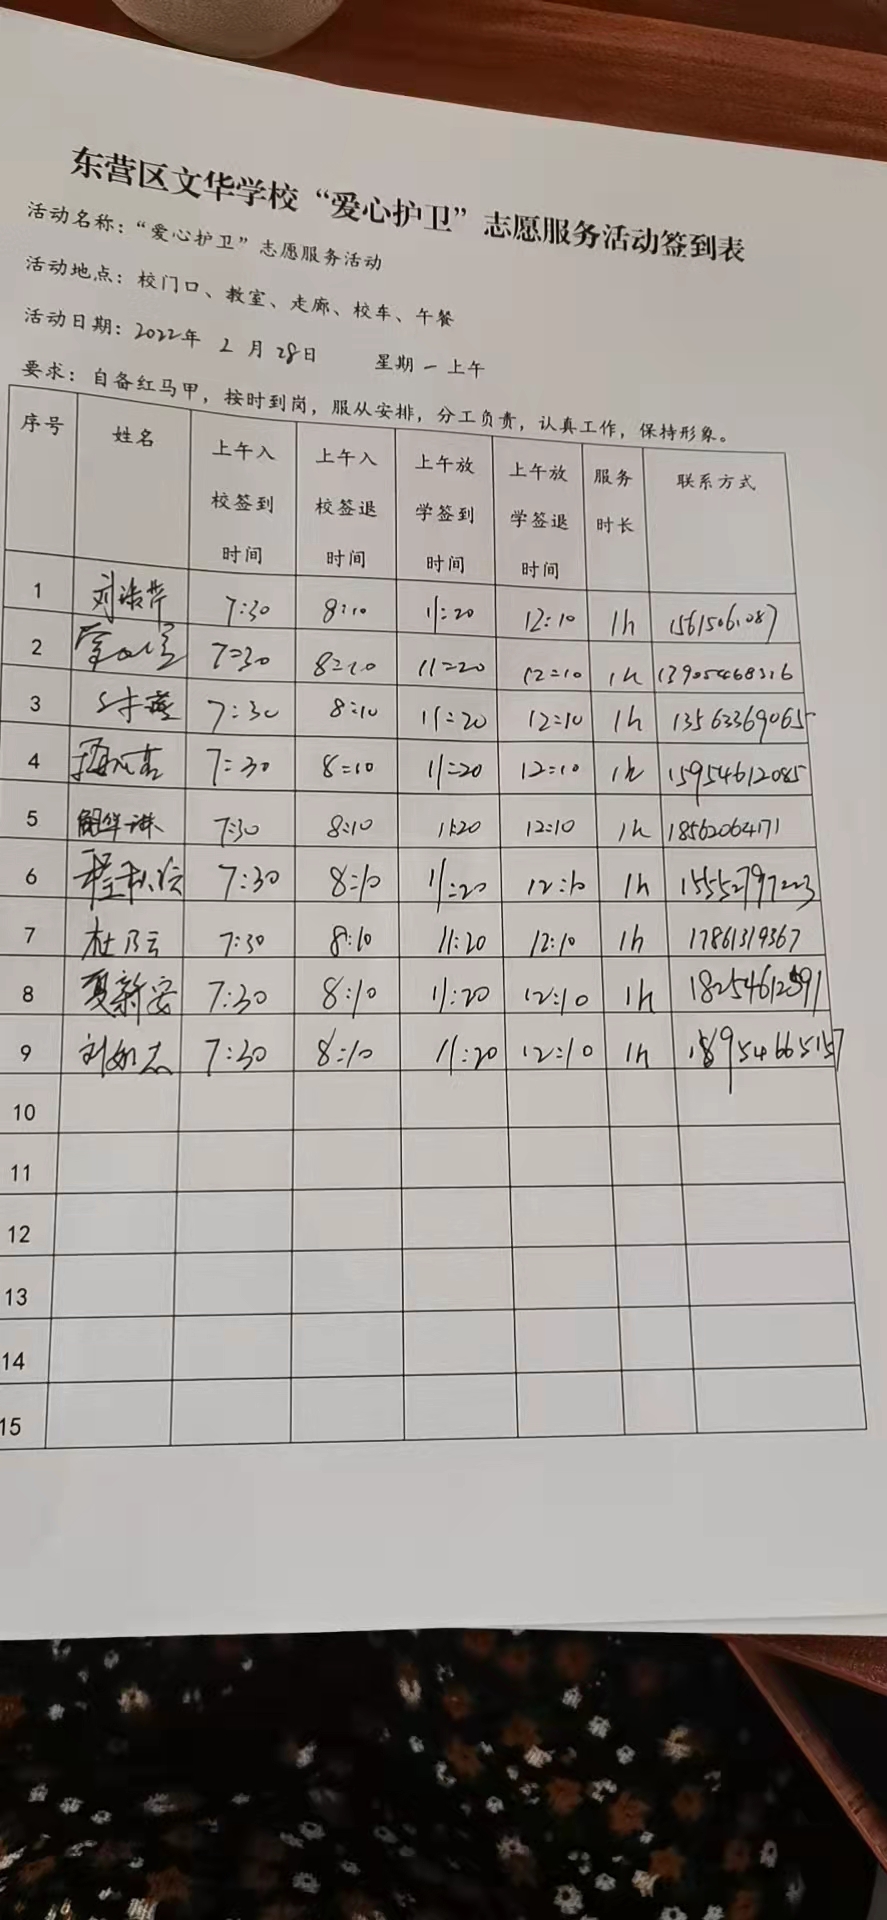 东营区文华学校“爱心护卫”志愿服务活动签到表
活动名称：“爱心护卫”志愿服务活动
活动地点：校门口、教室、走廊、校车、午餐
活动日期：2022年 2月28日 星期一上午
要求：自备红马甲，按时到岗，服从安排，分工负责，认真工作，保持形象。
序号 姓名 上午入校签到时间 上午入校签退时间 上午放学签到时间 上午放学签退时间 服务时长 联系方式
1 7:30 8:10 11:20 12:10 1h 15615061087
2 7:30 8:10 11:20 12:10 1h 13905468316
3 7:30 8:10 11:20 12:10 1h 13563369065
4 7:30 8:10 11:20 12:10 1h 15954612085
5 7:30 8:10 11:20 12:10 1h 18562064171
6 7:30 8:10 11:20 12:10 1h 15552797223
7 杜乃云 7:30 8:10 11:20 12:10 1h 17861319367
8 夏新安 7:30 8:10 11:20 12:10 1h
9 刘如志 7:30 8:10 11:20 12:10 1h 18954665157
10
11
12
13
14
15